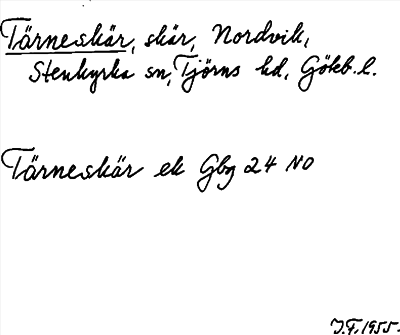 Tärneskär, skär, Nordvik,
Stenkyrka sn, Tjörns hd, Göteb. l.
Tärneskär ek Gbg 24 NO
J.F. 1955.